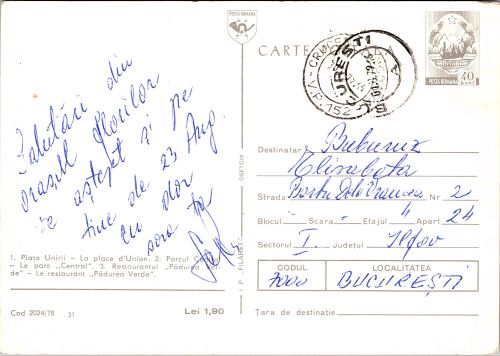 POSTA ROMANA
CARTE POSTALA
POSTA ROMANA 40 BANI
BUCUREȘTI
152
Salutări din
orașul florilor
te aștept și pe
tine de 23 Aug.
cu dor
sora ta
1. Piața Unirii — La place d'Union. 2. Parcul
— Le parc „Central". 3. Restaurantul „Pădurea
de" — Le restaurant "Pădurea Verde".
Cod 2024/78 31
Lei 1,90
I. P. „FILARET"
OSETCM
Destinatar
Elisabeta
Strada Nr. 2
Blocul Scara Etajul 4 Apart 24
Sectorul I. Județul Ilfov
CODUL LOCALITATEA
7000 BUCUREȘTI
Țara de destinație